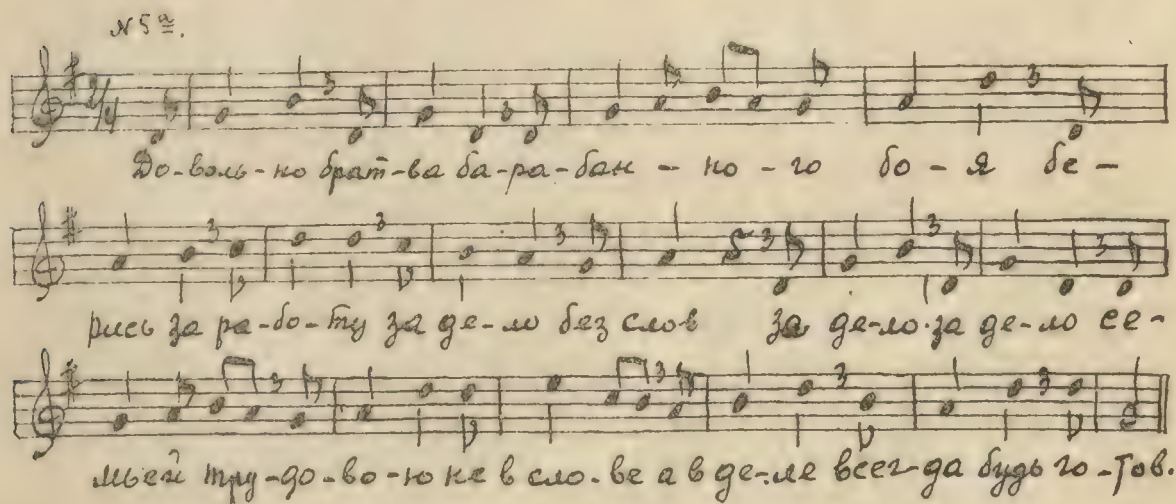 № 5а.
До-воль-но брат-ва ба-ра-бан - но - го бо - я бе -
рись за ра-бо-ту за де-ло без слов за де-ло за де-ло се-
мьей тру-до-во-ю не в сло-ве а в де-ле всег-да будь го-тов.